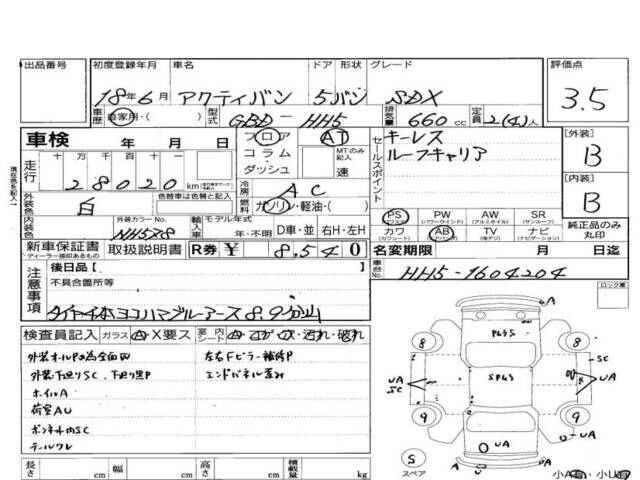 出品番号 初度登録年月 車名 ドア 形状 グレード 評価点
18年6月 アクティバン 5バン SDX 3.5
車歴 自家用・( ) 型式 GBD-HH5 排気量 660cc 定員 2(4)人
車検 年 月 日 フロア AT キーレス [外装]
走行 十万 万 千 百 十 一 コラム MTのみ記入 セールスポイント ルーフキャリア B
28020 km ダッシュ 速
冷房 AC [内装]
外装色 白 色替車は色替前の色を記入 燃料 ガソリン・軽油・( ) B
PS PW AW SR
(パワステ) (パワーウインド) (アルミホイル) (サンルーフ)
内装色 外装カラーNo. NH578 輸入車 モデル年式 年・不明 D車・並 右H・左H カワ AB TV ナビ 純正品のみ丸印
(カワシート) (エアバッグ) (地デジ) (ナビゲーション)
新車保証書 取扱説明書 R券 ¥ 8,540 名変期限 月 日迄
ディーラー捺印あるもの
注意事項 後日品[ ] 車台No. HH5-1604204
不具合箇所等 ロック車
検査員記入 ガラス A・X要ス 室内シート
外装オルPの為全面W 左右Fピラー補修P
外装下廻りSC、下廻り黒P エンドパネル歪み
ホイルA
荷室AU
ボンネット内SC
テールワレ
長さ cm 幅 cm 高さ cm 積載量 kg
UA
8 8
SC
UA
SC
UA
9 9
UA
S
スペア 小A有・小U有